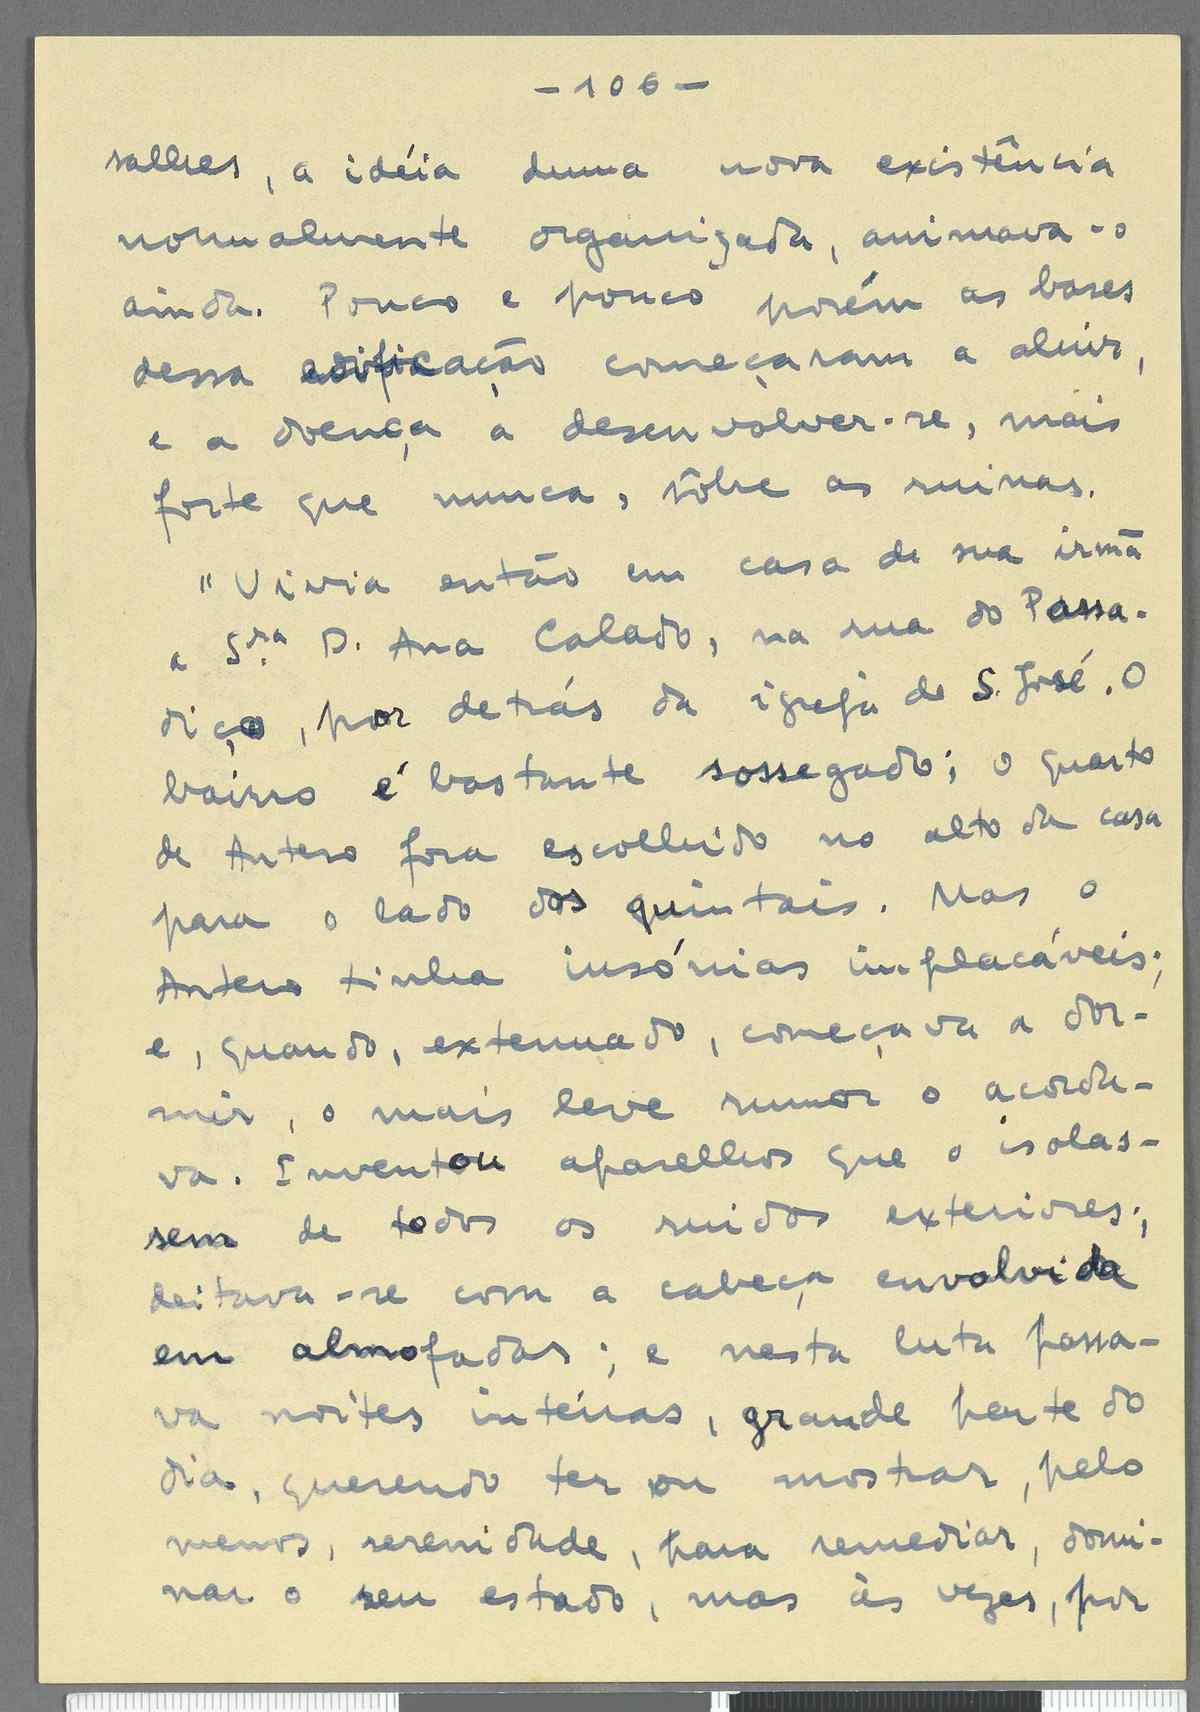 - 106 -
salhes, a idéia duma nova existência
normalmente organizada, animava-o
ainda. Pouco e pouco porém as bases
dessa edificação começaram a aluir,
e a doença a desenvolver-se, mais
forte que nunca, sôbre as ruinas.
"Vivia então em casa de sua irmã
a Sra. D. Ana Calado, na rua do Passa-
diço, por detrás da igreja de S. José. O
bairro é bastante sossegado; o quarto
de Antero fora escolhido no alto da casa
para o lado dos quintais. Mas o
Antero tinha insónias implacáveis;
e, quando, extenuado, começava a dor-
mir, o mais leve rumor o acorda-
va. Inventou aparelhos que o isolas-
sem de todos os ruidos exteriores;
deitava-se com a cabeça envolvida
em almofadas; e nesta luta passa-
va noites inteiras, grande parte do
dia, querendo ter ou mostrar, pelo
menos, serenidade, para remediar, domi-
nar o seu estado, mas às vezes, por